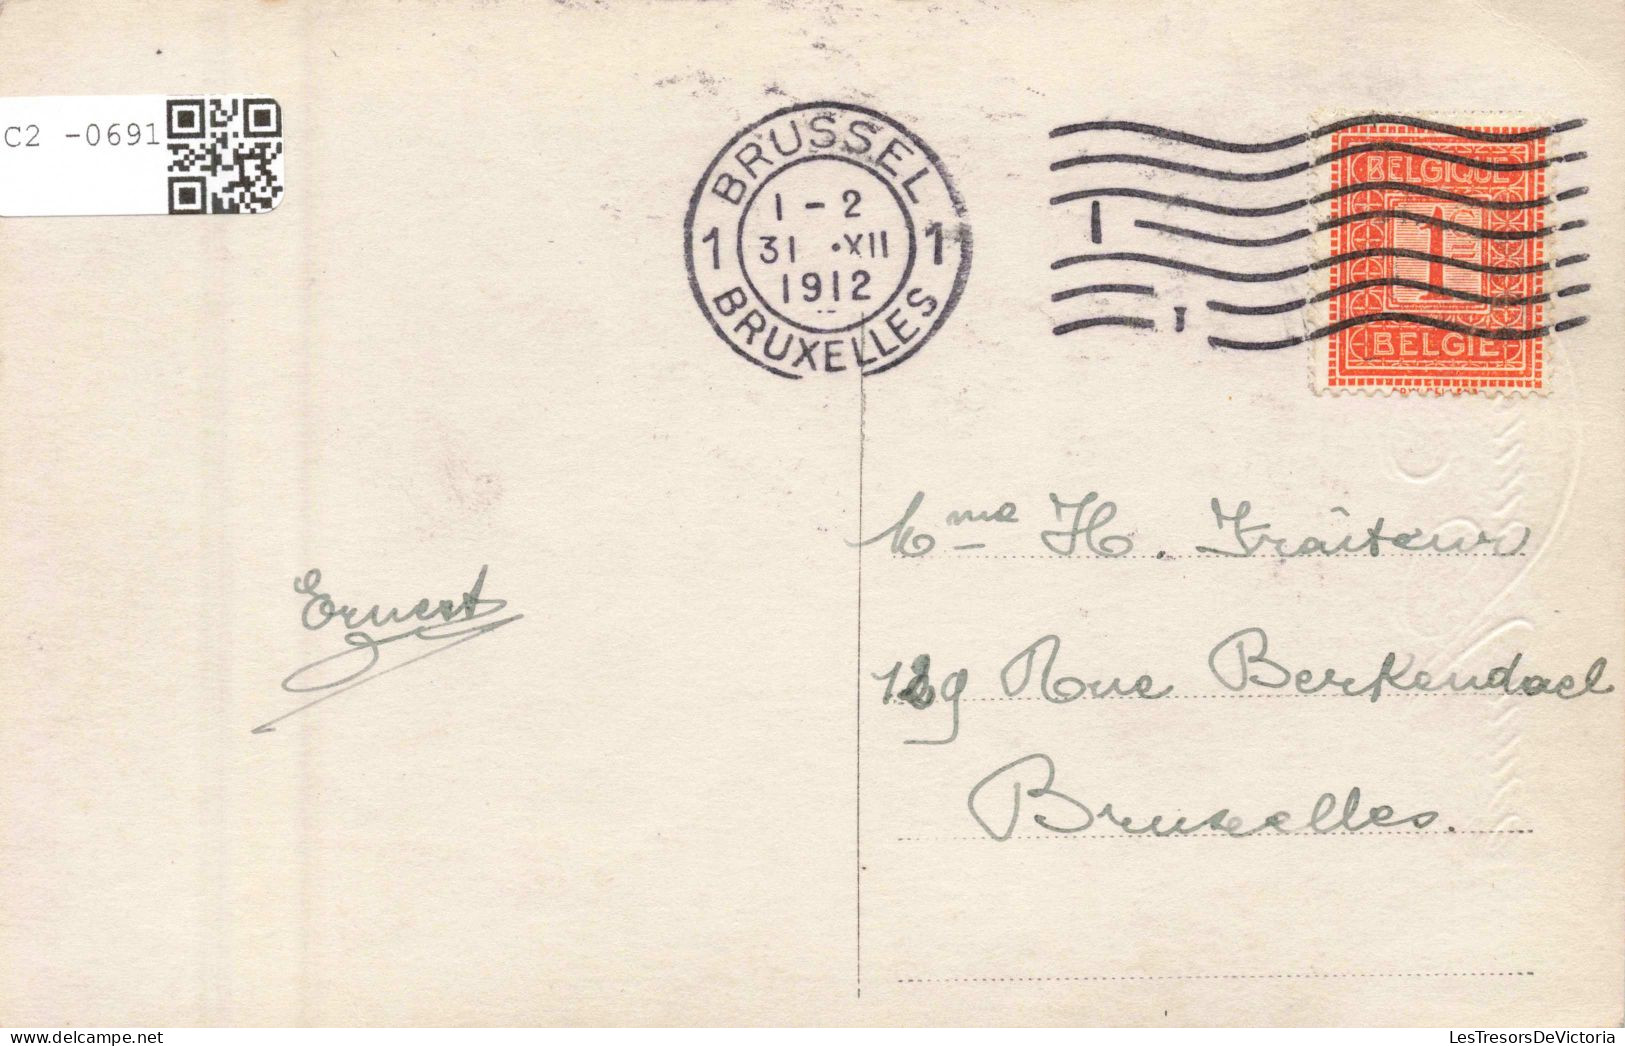 C2 -0691
BRUSSEL
1 - 2
1 31 ·XII 1
1912
BRUXELLES
BELGIQUE
1
BELGIË
Mme H. Traîteur
Ernest
Rue Berkendael
Bruxelles.
LesTresorsDeVictoria